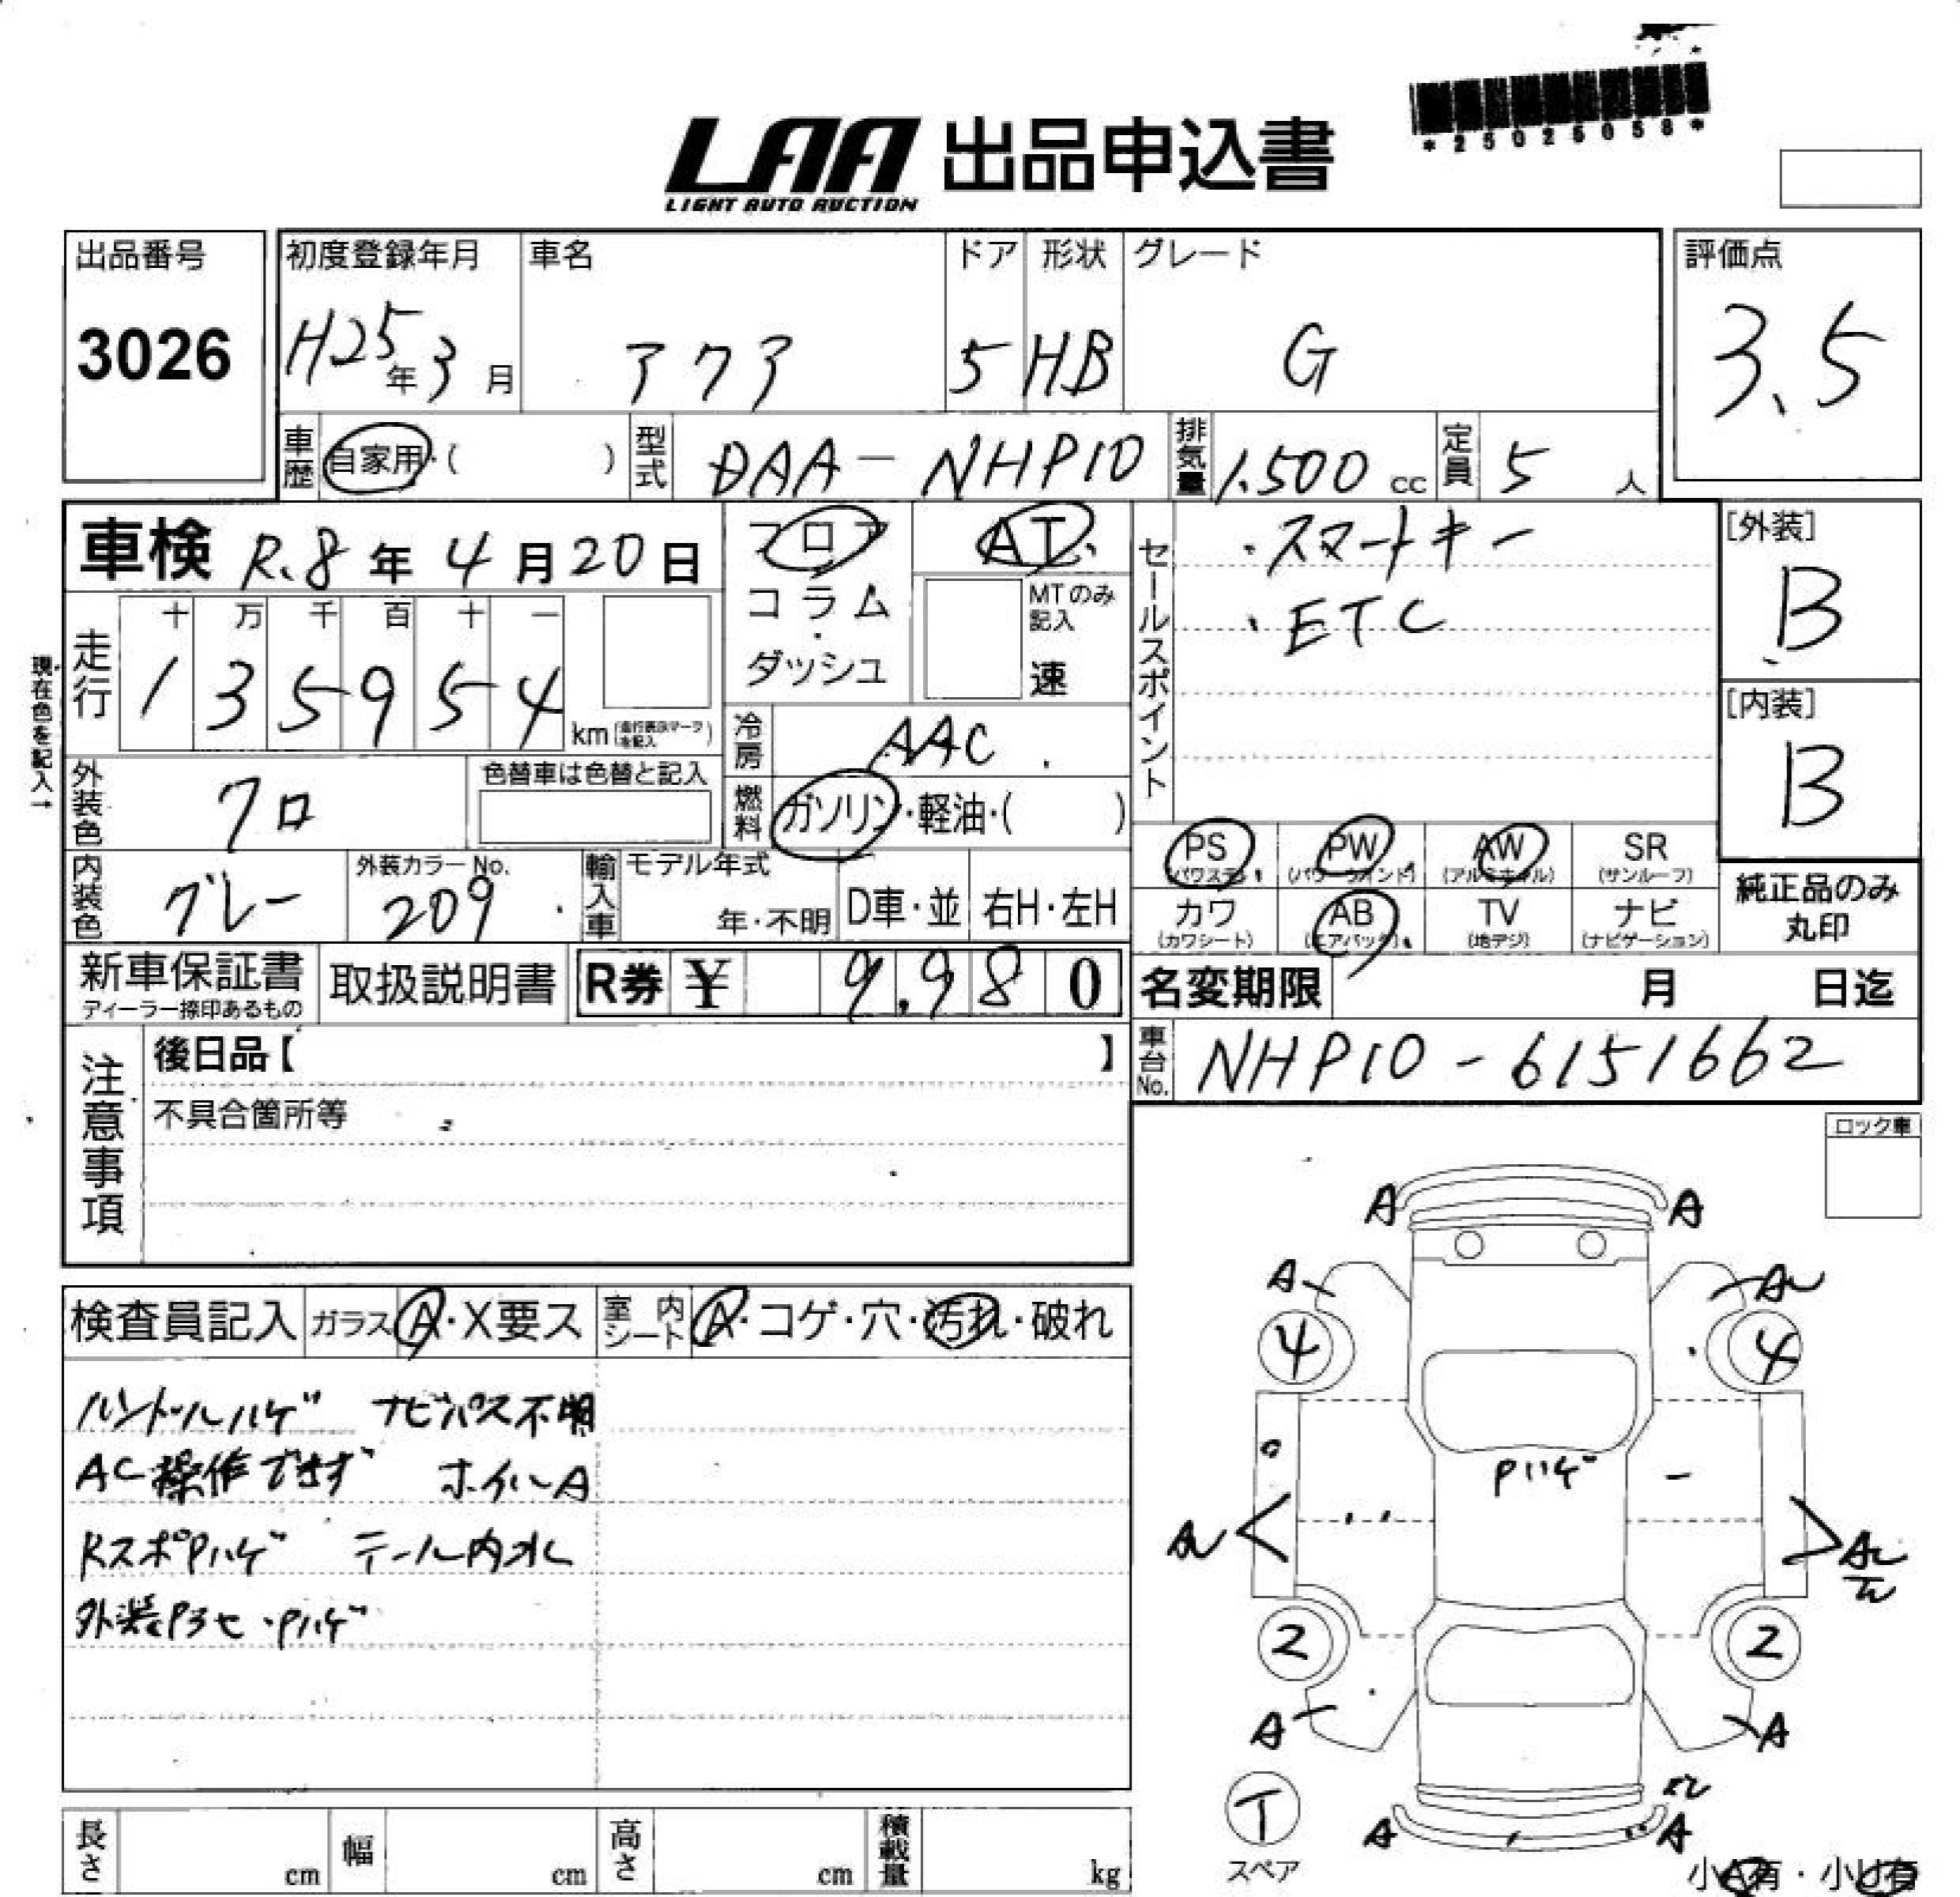 *25025058*
LAA 出品申込書
LIGHT AUTO AUCTION
出品番号 初度登録年月 車名 ドア 形状 グレード 評価点
3026 H25年3月 アクア 5 HB G 3.5
車歴 自家用・( ) 型式 DAA-NHP10 排気量 1.500cc 定員 5人
車検 R.8年4月20日 フロア AT セールスポイント ・スマートキー [外装]
コラム・ダッシュ MTのみ記入 速 ・ETC B
走行 十 万 千 百 十 一
1 3 5 9 5 4 km (走行表示マークを記入) [内装]
現在色を記入→
冷房 AAC B
外装色 クロ 色替車は色替と記入 燃料 ガソリン・軽油・( )
PS (パワステ) PW (パワーウインド) AW (アルミホイル) SR (サンルーフ)
内装色 グレー 外装カラーNo. 209 輸入車 モデル年式 年・不明 D車・並 右H・左H
カワ (カワシート) AB (エアバック) TV (地デジ) ナビ (ナビゲーション) 純正品のみ丸印
新車保証書 ディーラー捺印あるもの 取扱説明書 R券 ¥ 9,980 名変期限 月 日迄
注意事項 後日品【 】 車台No. NHP10-6151662
不具合箇所等
ロック車
A A
A AU
検査員記入 ガラス A・X要ス 室内シート A・コゲ・穴・汚れ・破れ
4 4
ハンドルハゲ ナビパス不明
AC操作できず ホイルA
Pハゲ
RスポPハゲ テール内水
AU AU
外装Pヤセ・Pハゲ
2 2
A A
T
スペア
A A
長さ cm 幅 cm 高さ cm 積載量 kg
小A有・小U有